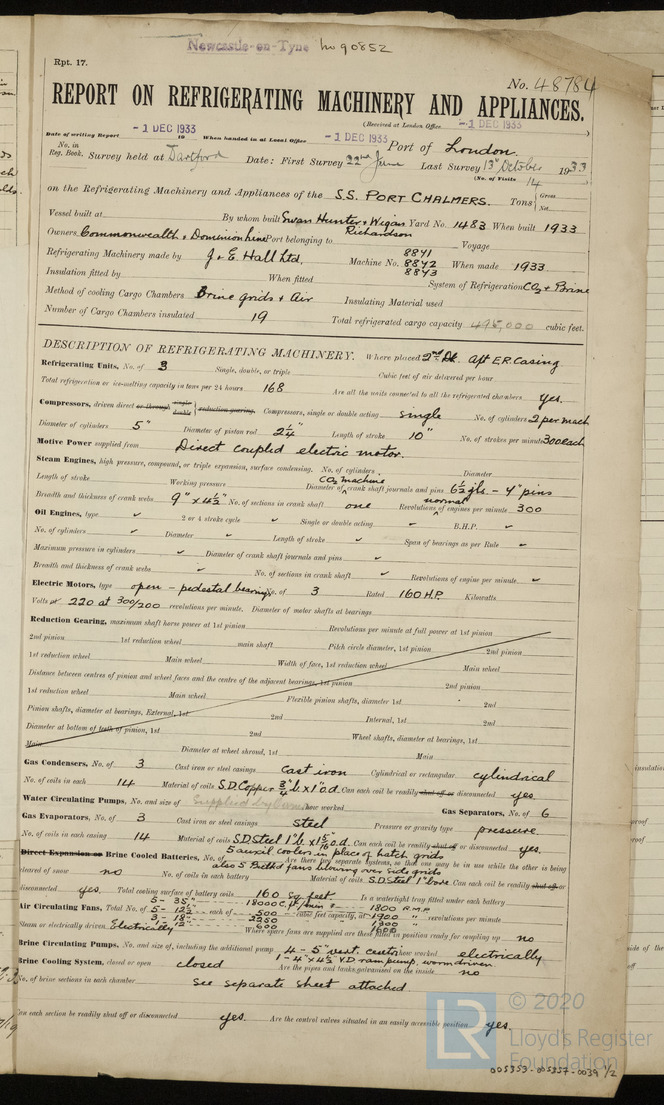 Newcastle-on-Tyne No 90852
Rpt. 17.
No. 48784
REPORT ON REFRIGERATING MACHINERY AND APPLIANCES.
(Received at London Office -1 DEC 1933)
Date of writing Report -1 DEC 1933 19 When handed in at Local Office -1 DEC 1933 Port of London.
No. in Reg. Book. Survey held at Dartford Date: First Survey 22nd June Last Survey 13th October 1933
(No. of Visits 14
on the Refrigerating Machinery and Appliances of the S.S. PORT CHALMERS. Tons { Gross Net
Vessel built at By whom built Swan Hunter & Wigan Richardson Yard No. 1483 When built 1933
Owners Commonwealth & Dominion Line Port belonging to Voyage
Refrigerating Machinery made by J & E Hall Ltd. Machine No. 8841 8842 8843 When made 1933.
Insulation fitted by When fitted System of Refrigeration CO2 & Brine
Method of cooling Cargo Chambers Brine grids & Air Insulating Material used
Number of Cargo Chambers insulated 19 Total refrigerated cargo capacity 495,000 cubic feet.
DESCRIPTION OF REFRIGERATING MACHINERY. Where placed 2nd Dk. aft E.R Casing
Refrigerating Units, No. of 3 Single, double, or triple Cubic feet of air delivered per hour
Total refrigeration or ice-melting capacity in tons per 24 hours 168 Are all the units connected to all the refrigerated chambers yes.
Compressors, driven direct or through single double reduction gearing. Compressors, single or double acting single No. of cylinders 2 per mach
Diameter of cylinders 5" Diameter of piston rod 2¼" Length of stroke 10" No. of strokes per minute 300 each
Motive Power supplied from Direct coupled electric motor.
Steam Engines, high pressure, compound, or triple expansion, surface condensing. No. of cylinders Diameter
Length of stroke Working pressure CO2 machine Diameter of crank shaft journals and pins 6½ jls. - 4" pins
Breadth and thickness of crank webs 9" x 4½" No. of sections in crank shaft one normal Revolutions of engines per minute 300
Oil Engines, type ✓ 2 or 4 stroke cycle ✓ Single or double acting ✓ B.H.P. ✓
No. of cylinders ✓ Diameter ✓ Length of stroke ✓ Span of bearings as per Rule ✓
Maximum pressure in cylinders ✓ Diameter of crank shaft journals and pins ✓
Breadth and thickness of crank webs ✓ No. of sections in crank shaft ✓ Revolutions of engine per minute ✓
Electric Motors, type open - pedestal bearings No. of 3 Rated 160 H.P. Kilowatts
Volts or 220 at 300/200 revolutions per minute. Diameter of motor shafts at bearings
Reduction Gearing, maximum shaft horse power at 1st pinion Revolutions per minute at full power at 1st pinion
2nd pinion 1st reduction wheel main shaft Pitch circle diameter, 1st pinion 2nd pinion
1st reduction wheel Main wheel Width of face, 1st reduction wheel Main wheel
Distance between centres of pinion and wheel faces and the centre of the adjacent bearings, 1st pinion 2nd pinion
1st reduction wheel Main wheel Flexible pinion shafts, diameter 1st 2nd
Pinion shafts, diameter at bearings, External, 1st 2nd Internal, 1st 2nd
Diameter at bottom of teeth of pinion, 1st 2nd Wheel shafts, diameter at bearings, 1st
Main Diameter at wheel shroud, 1st Main
Gas Condensers, No. of 3 Cast iron or steel casings cast iron Cylindrical or rectangular cylindrical
No. of coils in each 14 Material of coils S.D. Copper ¾" b x 1" o.d. Can each coil be readily shut off or disconnected yes.
Water Circulating Pumps, No. and size of Supplied by how worked Gas Separators, No. of 6
Gas Evaporators, No. of 3 Cast iron or steel casings steel Pressure or gravity type pressure
No. of coils in each casing 14 Material of coils S.D. Steel 1" b. x 1 5/16" o.d. Can each coil be readily shut off or disconnected yes.
5 auxil coolers in place of hatch grids
Direct Expansion or Brine Cooled Batteries, No. of Are there two separate systems, so that one may be in use while the other is being
also 5 fans blowing over side grids
cleared of snow no No. of coils in each battery Material of coils S.D. Steel 1" bore. Can each coil be readily shut off or
disconnected yes. Total cooling surface of battery coils 160 sq feet. Is a watertight tray fitted under each battery
Air Circulating Fans, Total No. of 5 - 35" 5 - 12½" 3 - 18" 1 - 12" each of 18000 C.ft/min 500 2250 600 cubic feet capacity, at 1300 R.P.M. 1900 1300 1600 revolutions per minute
Steam or electrically driven Electrically Where spare fans are supplied are these fitted in position ready for coupling up no
Brine Circulating Pumps, No. and size of, including the additional pump 4 - 5" vert. centri how worked electrically
1 - 4" x 4½ V.D ram pump, worm driven.
Brine Cooling System, closed or open closed Are the pipes and tanks galvanised on the inside no
No. of brine sections in each chamber see separate sheet attached
Can each section be readily shut off or disconnected yes. Are the control valves situated in an easily accessible position yes.
© 2020
LR
Lloyd's Register
Foundation
005353-005357-0039 1/2